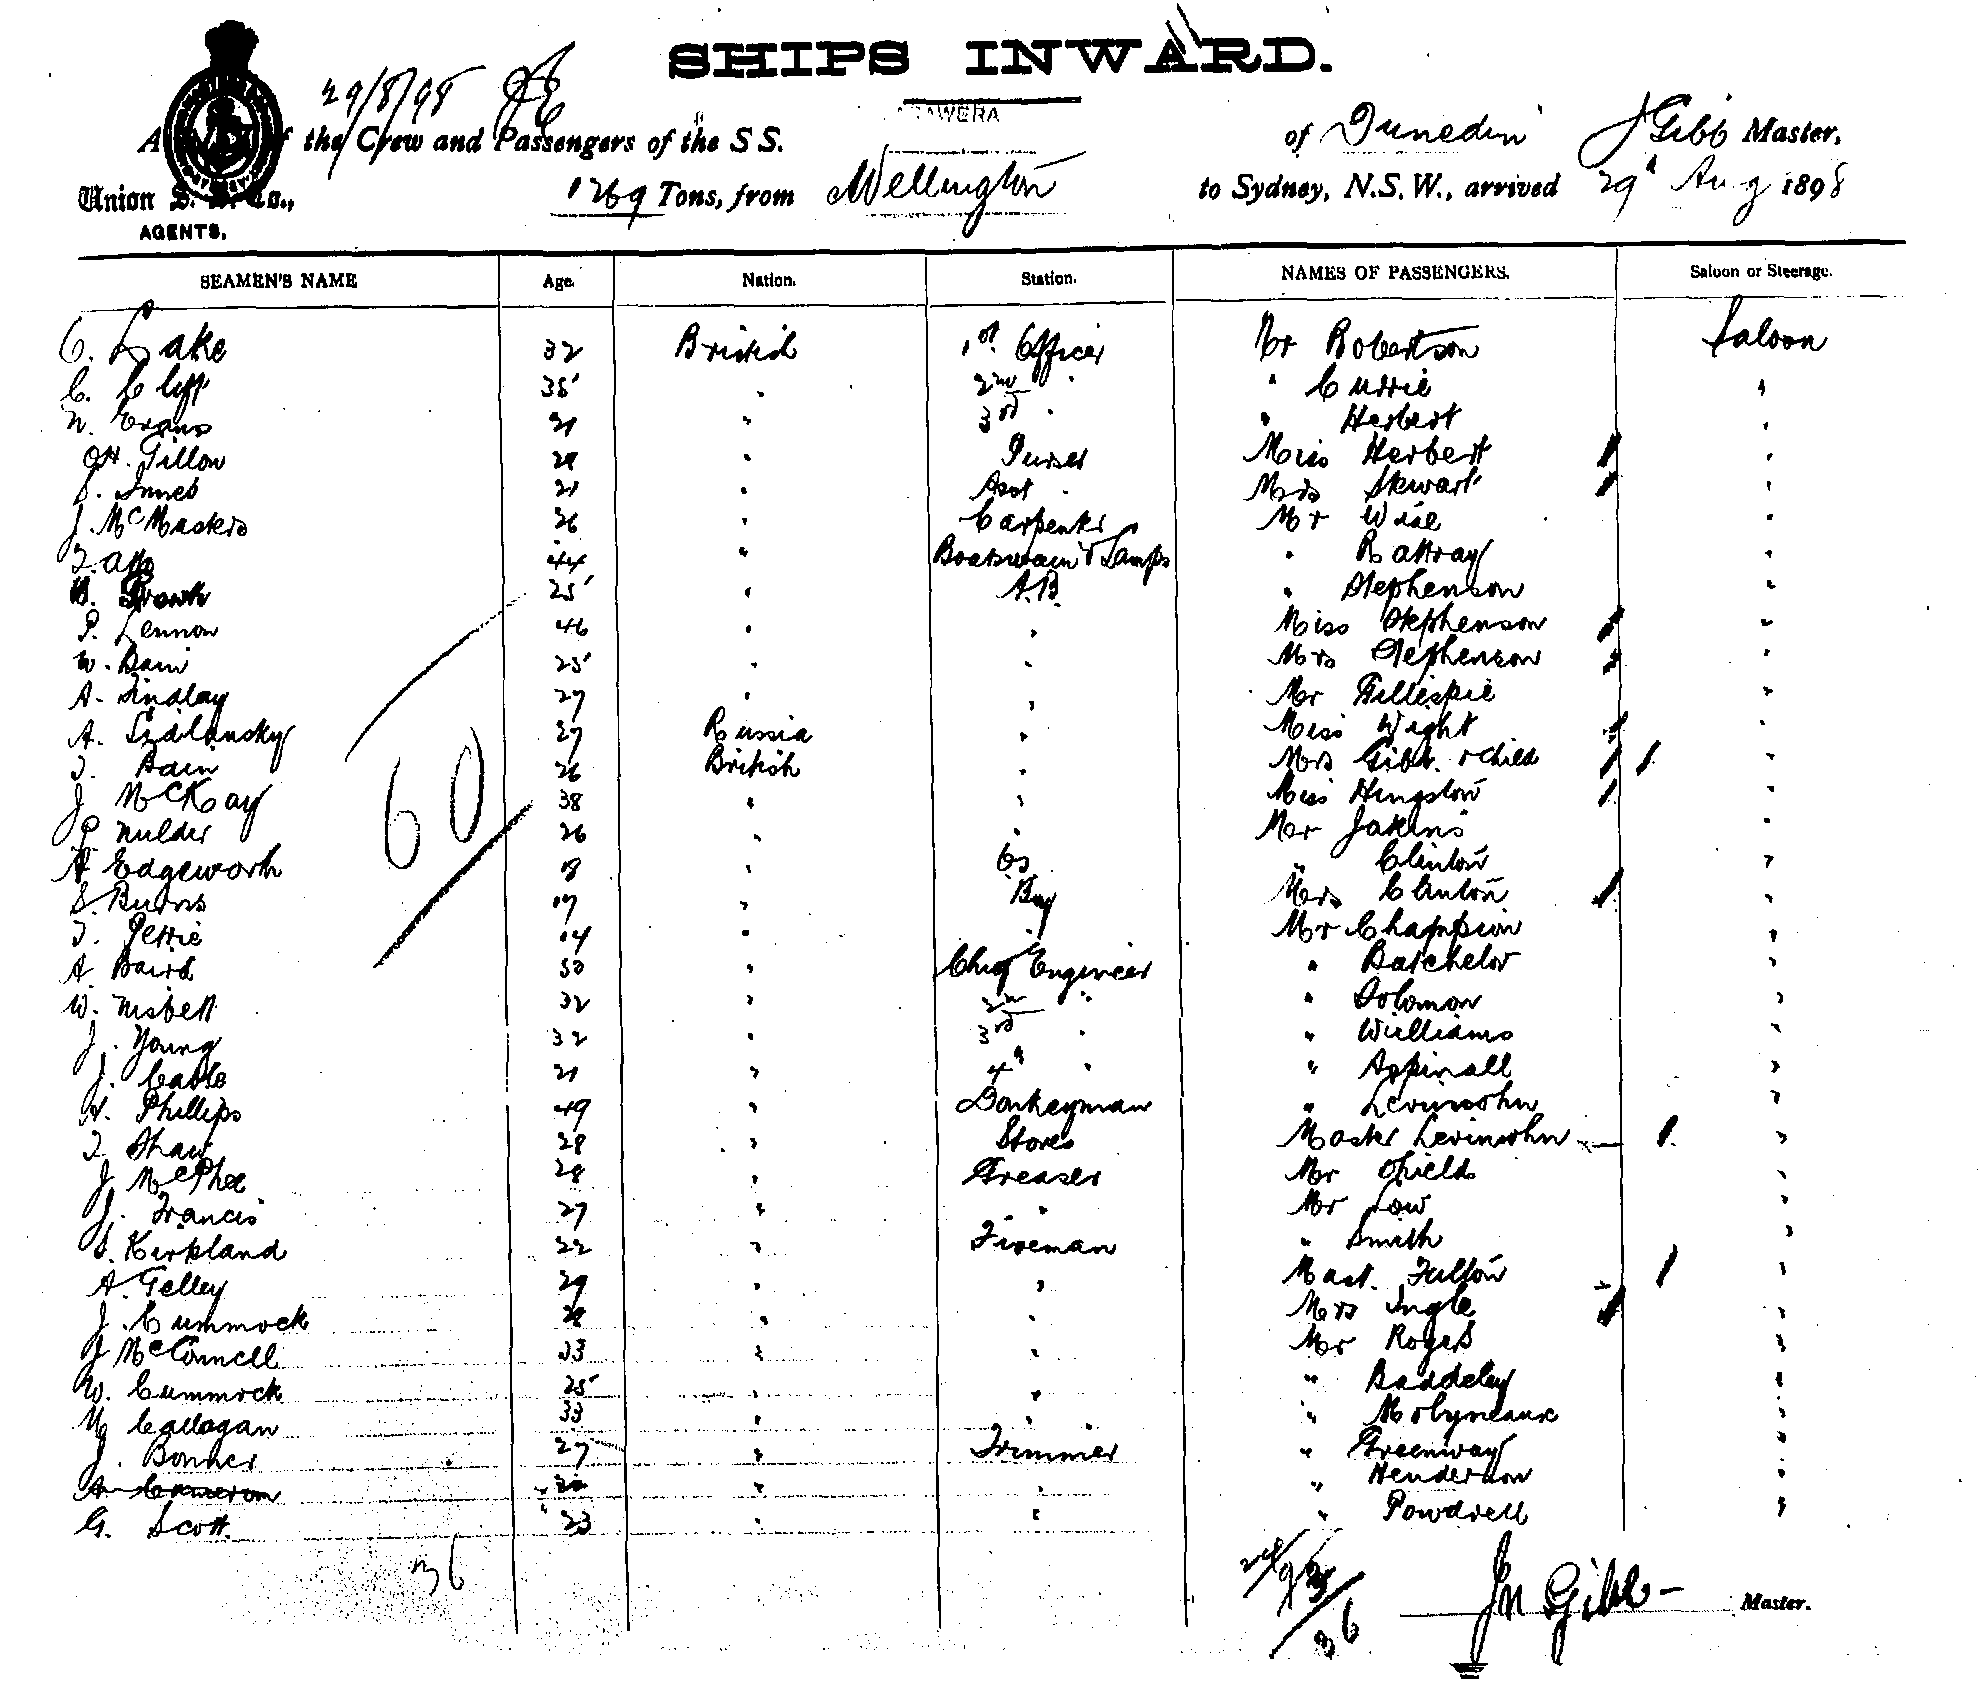 SHIPS INWARD.
29/8/98
the Crew and Passengers of the S S. of Dunedin J Gibb Master,
Union Co., 1269 Tons, from Wellington to Sydney, N.S.W., arrived 29th Aug 1898
AGENTS.
SEAMEN'S NAME Age. Nation. Station. NAMES OF PASSENGERS. Saloon or Steerage.
C. Lake 32 British 1st Officer Mr Robertson Saloon
C. Cliff 35 " 2nd " " Currie "
N. Evans 21 " 3rd " " Herbert "
Fillon " Purser Miss Herbert "
S. Innes 21 " Asst " Mrs Stewart "
J. McMasters 26 " Carpenter Mr Wise "
44 " Boatswain & Lamps " Rattray "
Brown 25 " A.B. " Stephenson "
P. Lennon 46 " " Miss Stephenson "
W. Bain 25 " " Mrs Stephenson "
A. Findlay 27 " " Mr Gillespie "
A. 27 Russia " Miss Wight "
Bain 26 British " Mrs Gibb & Child "
J McKay 38 " " Miss Hingston "
P. Mulder 26 " " Mr Jakins "
60
Edgeworth 18 " OS " Clinton "
S. Burns 17 " Boy Mrs Clinton "
Petrie 14 " " Mr Champion "
A. Baird 50 " Chief Engineer " Batchelor "
W. Nisbett 32 " 2nd " " Solomon "
J. Young 32 " 3rd " " Williams "
J. Cable 21 " 4th " " Aspinall "
Phillips 49 " Donkeyman " Levinsohn "
Shaw 28 " Stores Master Levinsohn "
J McPhee 28 " Greaser Mr Shields "
J. Francis 27 " " Mr Low "
S. Kirkland 22 " Fireman " Smith "
A. Telley 29 " " Mast. Fulton "
J. Cummock " " Mrs Ingle "
J McConnell 33 " " Mr Rogers "
W. Cummock 25 " " " Baddeley "
M Callagan 33 " " " Molyneaux "
J. Bonner 27 " Trimmer " Greenway "
A Cameron " " " Henderson "
G. Scott. 23 " " " Powdrell "
36
36
Jn Gibb Master.